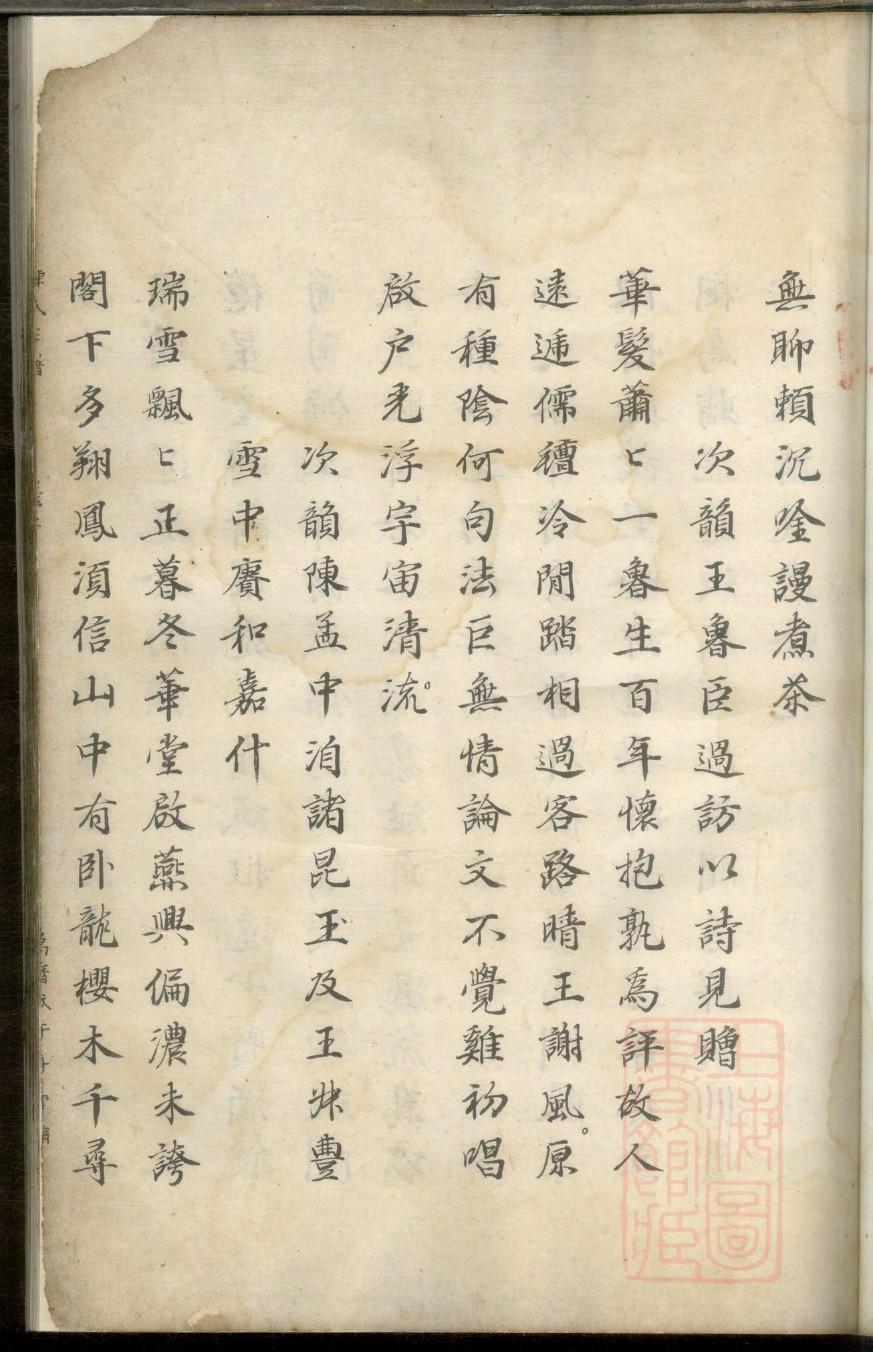 無聊頼沉唫謾煮茶
次韻王魯臣過訪以詩見贈
華髮蕭〻一魯生百年懷抱孰爲評故人
遠逓儒氊冷閒踏相過客路晴王謝風。原
有種陰何句法巨無情論文不覺雞初唱
啟户光浮宇宙清流。
次韻陳孟中洎諸昆玉及王叔豊
雪中賡和嘉什
瑞雪飄〻正暮冬華堂啟燕興偏濃未誇
閣下多翔鳳湏信山中有卧龍櫻木千尋
上海圖書館藏